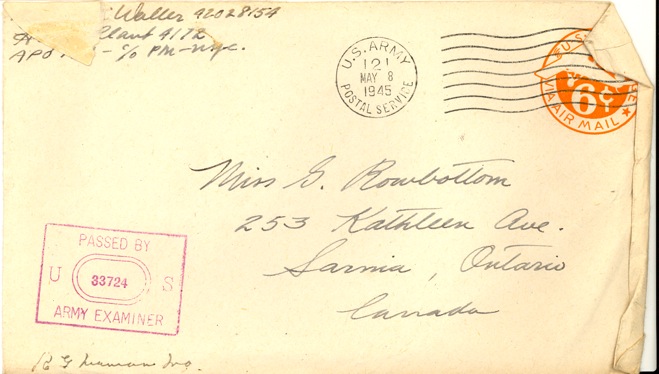 Waller 42028154
Plant 4172
APO - c/o PM-NYC.
U.S. ARMY
121
MAY 8
1945
POSTAL SERVICE
6¢
VIA AIR MAIL
Miss G. Rowbottom
253 Kathleen Ave.
Sarnia, Ontario
Canada
PASSED BY
U 33724 S
ARMY EXAMINER